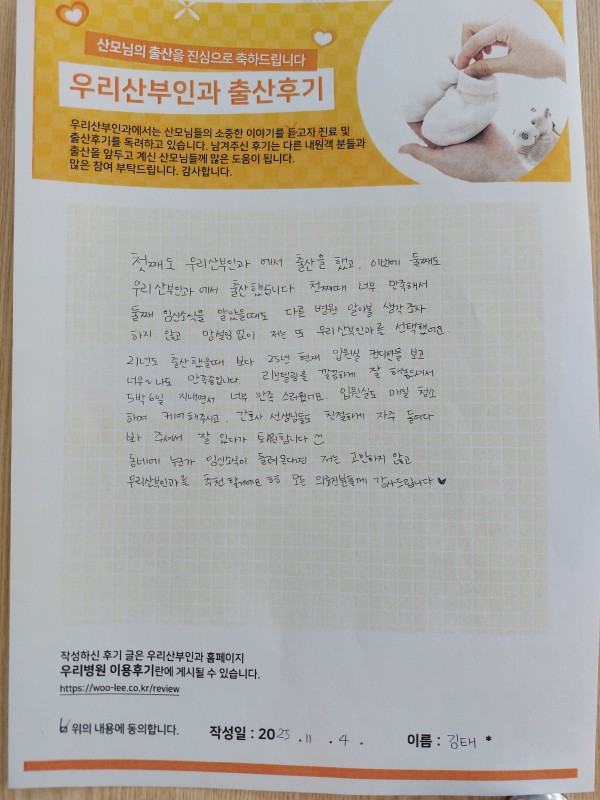 산모님의 출산을 진심으로 축하드립니다
우리산부인과 출산후기
우리산부인과에서는 산모님들의 소중한 이야기를 듣고자 진료 및
출산후기를 독려하고 있습니다. 남겨주신 후기는 다른 내원객 분들과
출산을 앞두고 계신 산모님들께 많은 도움이 됩니다.
많은 참여 부탁드립니다. 감사합니다.
첫째도 우리산부인과 에서 출산을 했고, 이번에 둘째도
우리산부인과에서 출산했습니다 첫째때 너무 만족해서
둘째 임신소식을 알았을때도 다른 병원 알아볼 생각조차
하지 않고 망설임없이 저는 또 우리산부인과를 선택했어요.
21년도 출산했을때 보다 25년 현재 입원실 컨디션을 보고
너무~나도 만족중입니다. 리모델링을 깔끔하게 잘 하셨어서
5박6일 지내면서 너무 만족스러웠어요. 입원실도 매일 청소
하며 케어해주시고, 간호사 선생님들도 친절하게 자주 들여다
봐 주셔서 잘 있다가 퇴원합니다
동네에 누군가 임신소식이 들려온다면 저는 고민하지 않고
우리산부인과를 추천할게요 ㅎㅎ 모든 의료진분들께 감사드립니다 ♥
작성하신 후기 글은 우리산부인과 홈페이지
우리병원 이용후기란에 게시될 수 있습니다.
https://woo-lee.co.kr/review
위의 내용에 동의합니다. 작성일 : 2025 . 11 . 4 . 이름 : 김태 *